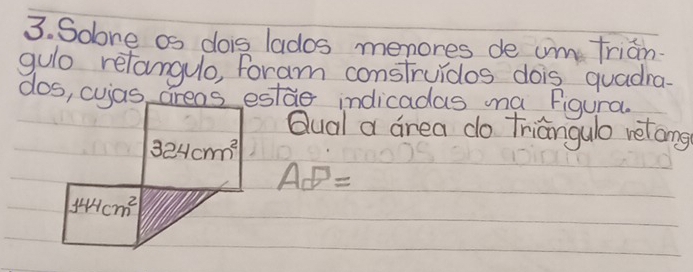 3. Sobre os dois lados menores de um triân-
gulo retangulo, foram construídos dois quadra-
dos, cujas áreas estão indicadas na figura.
Qual a área do triângulo retang
324cm²
A▱=
144cm²